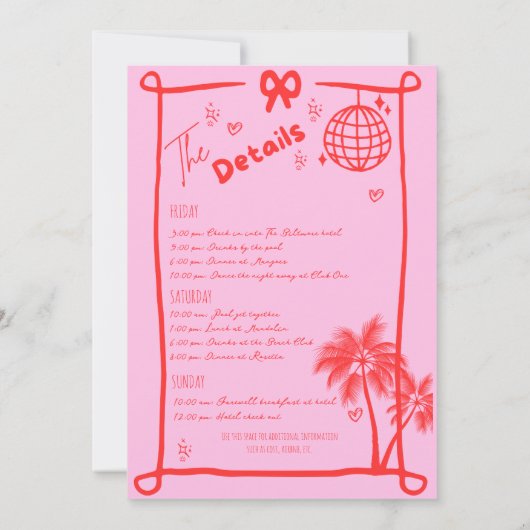 The Details
FRIDAY
3:00 pm: Check in into The Biltmore hotel
5:00 pm: Drinks by the pool
6:00 pm: Dinner at Mangoes
10:00 pm: Dance the night away at Club One
SATURDAY
10:00 am: Pool get together
1:00 pm: Lunch at Mandolin
6:00 pm: Drinks at the Beach Club
8:00 pm: Dinner at Rosetta
SUNDAY
10:00 am: Farewell breakfast at hotel
12:00 pm: Hotel check out
USE THIS SPACE FOR ADDITIONAL INFORMATION
SUCH AS COST, AIRBNB, ETC.